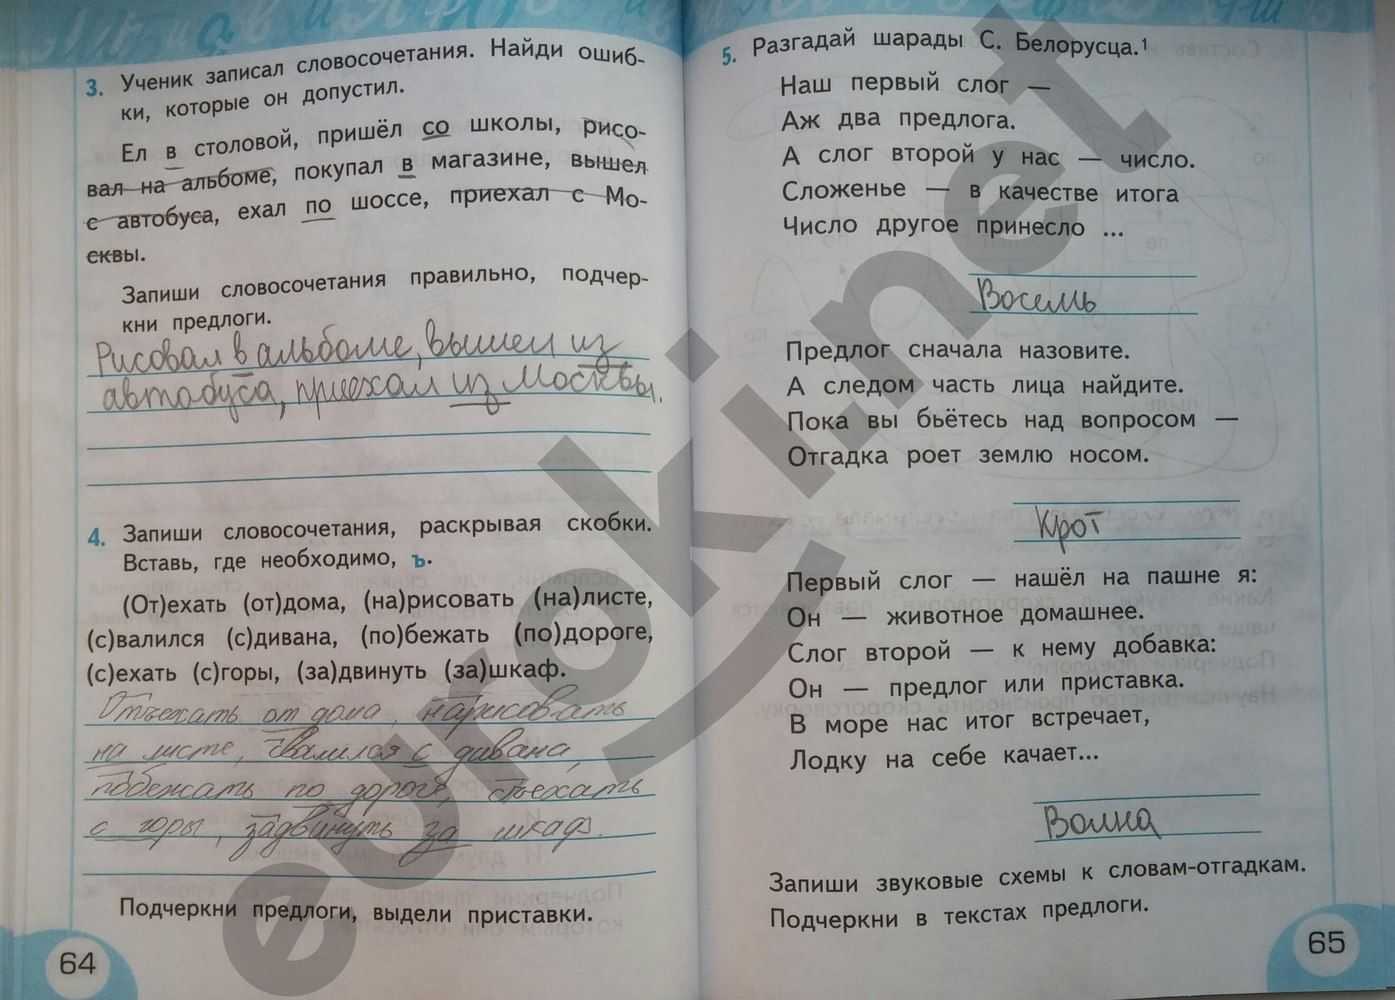 3. Ученик записал словосочетания. Найди ошиб-
ки, которые он допустил.
Ел в столовой, пришёл со школы, рисо-
вал на альбоме, покупал в магазине, вышел
с автобуса, ехал по шоссе, приехал с Мо-
сквы.
Запиши словосочетания правильно, подчер-
кни предлоги.
Рисовал в альбоме, вышел из
автобуса, приехал из Москвы.
4. Запиши словосочетания, раскрывая скобки.
Вставь, где необходимо, ъ.
(От)ехать (от)дома, (на)рисовать (на)листе,
(с)валился (с)дивана, (по)бежать (по)дороге,
(с)ехать (с)горы, (за)двинуть (за)шкаф.
Отъехать от дома, нарисовать
на листе, свалился с дивана,
побежать по дороге, съехать
с горы, задвинуть за шкаф.
Подчеркни предлоги, выдели приставки.
64
5. Разгадай шарады С. Белорусца.1
Наш первый слог —
Аж два предлога.
А слог второй у нас — число.
Сложенье — в качестве итога
Число другое принесло ...
Восемь
Предлог сначала назовите.
А следом часть лица найдите.
Пока вы бьётесь над вопросом —
Отгадка роет землю носом.
Крот
Первый слог — нашёл на пашне я:
Он — животное домашнее.
Слог второй — к нему добавка:
Он — предлог или приставка.
В море нас итог встречает,
Лодку на себе качает...
Волна
Запиши звуковые схемы к словам-отгадкам.
Подчеркни в текстах предлоги.
65
euroki.net